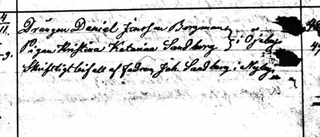 4/11.
Drängen Daniel Jonsson Borgman
Pigan Kristina Katarina Sandberg } i Öjeby
Skriftligt bifall af fadren, Joh. Sandberg i